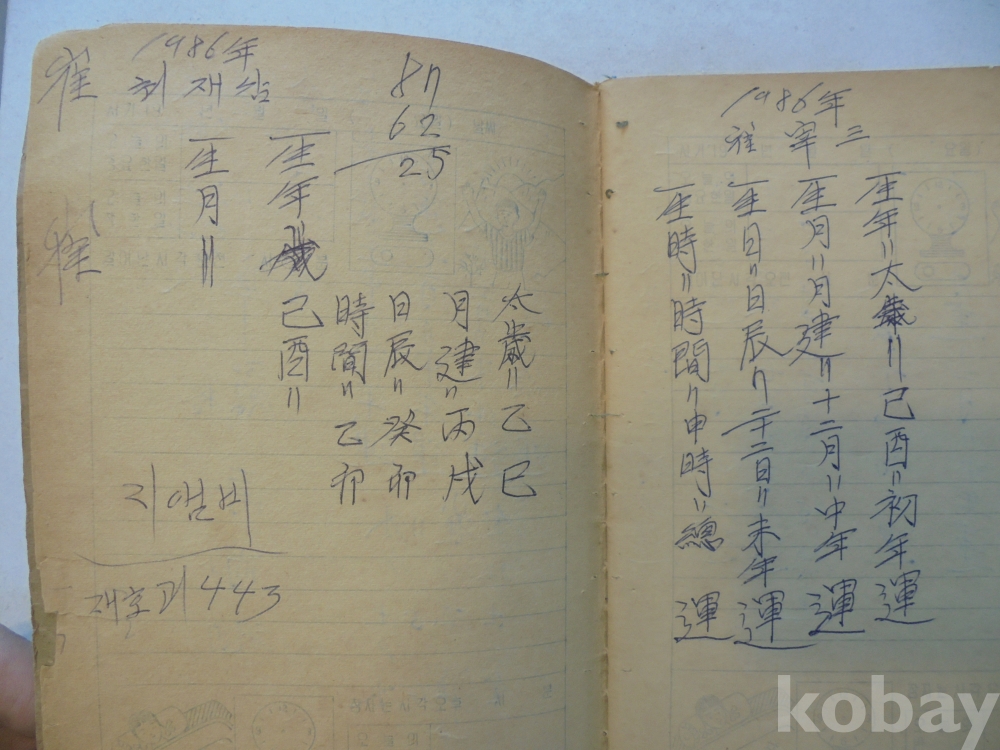 1986年
崔 최재삼
87
62
25
生年
生月〃
崔
太歲〃乙巳
月建〃丙戌
日辰〃癸卯
時間〃乙卯
己酉〃
지엠비
재후괴443
1986年
崔宰三
生年〃太歲〃己酉〃初年運
生月〃月建〃十二月〃中年運
生日〃日辰〃二十二日〃末年運
生時〃時間〃申時〃總運
kobay